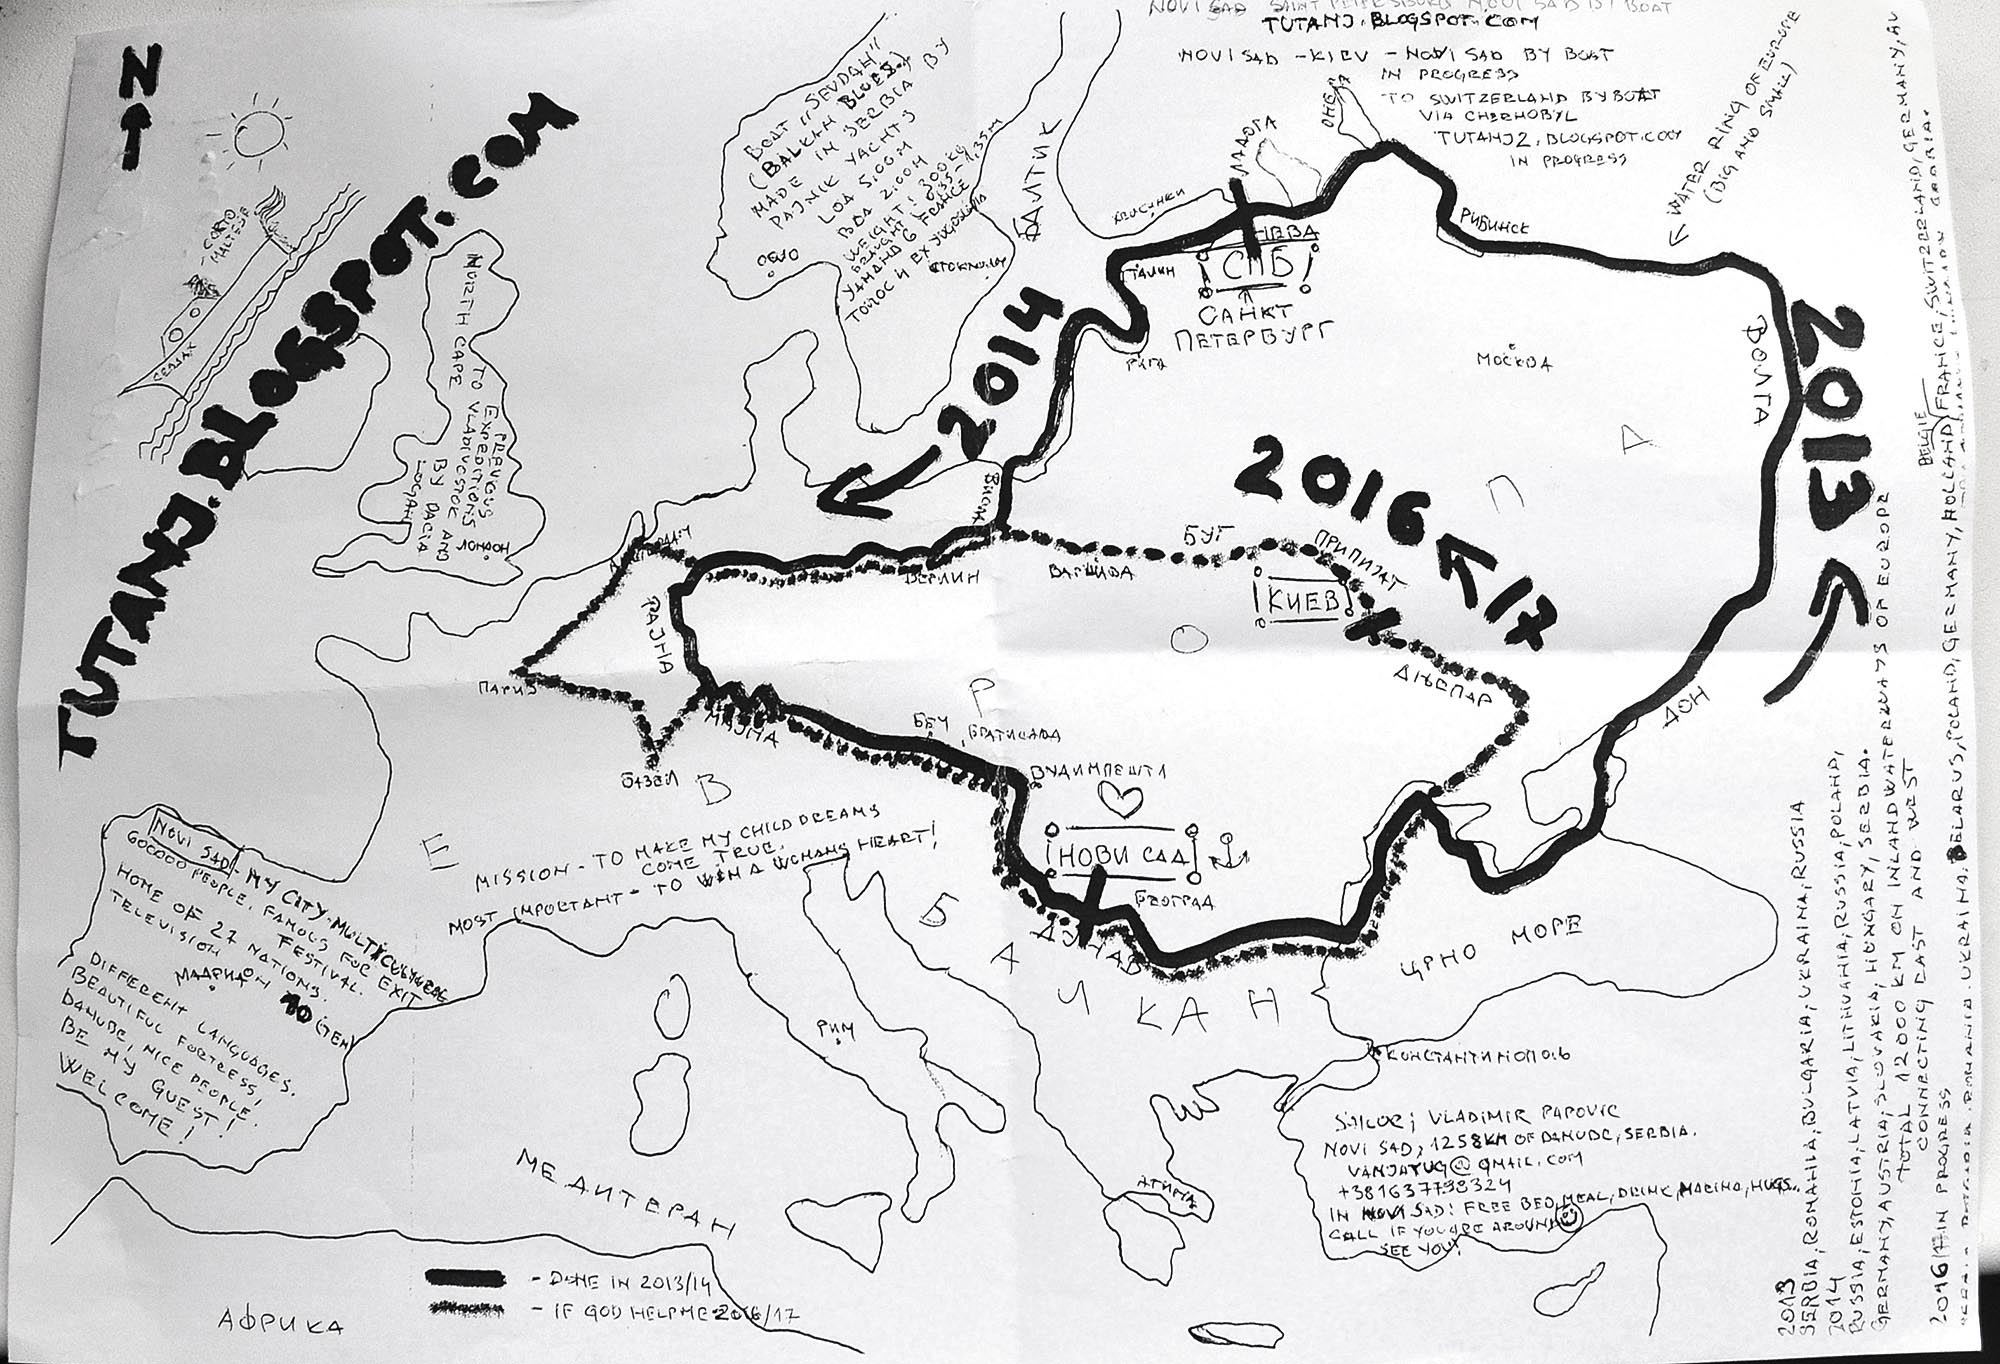 NOVI SAD SAINT PETERSBURG NOVI SAD BY BOAT
TUTANJ.BLOGSPOT.COM
NOVI SAD - KIEV - NOVI SAD BY BOAT
IN PROGRESS
TO SWITZERLAND BY BOAT
VIA CHERNOBYL
TUTANJ2.BLOGSPOT.COM
IN PROGRESS
WATER RING OF EUROPE
(BIG AND SMALL)
N
TUTANJ.BLOGSPOT.COM
CORTO
MALTESE
СЕВДАХ
BOAT "SEVDAH"
(BALKAN BLUES)
MADE IN SERBIA BY
PAJNIK YACHTS
LOA 5,00M
BOA 2,00M
WEIGHT: 300KG
DRAUGHT 0,35-1,35M
YAMAHA 6
TOMOS 4 EX YUGOSLAVIA
ОСЛО
СТОКХОЛМ
БАЛТИК
ХЕЛСИНКИ
ЛАДОГА
ОНЕГА
НЕВА
СПБ
САНКТ
ПЕТЕРБУРГ
ТАЛИН
РИГА
РИБИНСК
МОСКВА
ВОЛГА
2014
2013
2016/17
PREVIOUS
EXPEDITIONS
TO VLADIVOSTOK AND
NORTH CAPE BY DACIA
LOGAN
ЛОНДОН
БЕРЛИН
ВАРШАВА
БУГ
ПРИПЈАТ
КИЕВ
ДЊЕПАР
ДОН
РАЈНА
ПАРИЗ
МАЈНА
БАЗЕЛ
БЕЧ
БРАТИСЛАВА
БУДИМПЕШТА
НОВИ САД
БЕОГРАД
ДУНАВ
Е В Р О П А
БАЛКАН
ЦРНО МОРЕ
КОНСТАНТИНОПОЉ
MISSION - TO MAKE MY CHILD DREAMS
COME TRUE.
MOST IMPORTANT - TO WIN A WOMANS HEART!
NOVI SAD - MY CITY - MULTICULTURAL
600000 PEOPLE, FAMOUS FOR EXIT
FESTIVAL.
HOME OF 27 NATIONS.
TELEVISION
МАДРИД
ON 10 (TEN)
DIFFERENT LANGUAGES.
BEAUTIFUL FORTRESS,
DANUBE, NICE PEOPLE.
BE MY GUEST!
WELCOME!
РИМ
АТИНА
МЕДИТЕРАН
АФРИКА
- DONE IN 2013/14
- IF GOD HELP ME 2016/17
SAILOR: VLADIMIR PAPOVIC
NOVI SAD, 1258KM OF DANUBE, SERBIA.
VANJATUG@GMAIL.COM
+381637798324
IN NOVI SAD: FREE BED, MEAL, DRINK, MARINA, HUGS..
CALL IF YOU ARE AROUND
SEE YOU!
2013
SERBIA, ROMANIA, BULGARIA, UKRAINA, RUSSIA
2014
RUSSIA, ESTONIA, LATVIA, LITHUANIA, RUSSIA, POLAND,
GERMANY, AUSTRIA, SLOVAKIA, HUNGARY, SERBIA.
TOTAL 12000 KM ON INLAND WATERWAYS OF EUROPE
CONNECTING EAST AND WEST
2016/17 IN PROGRESS
ROMANIA, UKRAINA, BELARUS, POLAND, GERMANY, HOLLAND, BELGIE FRANCE, SWITZERLAND, GERMANY,